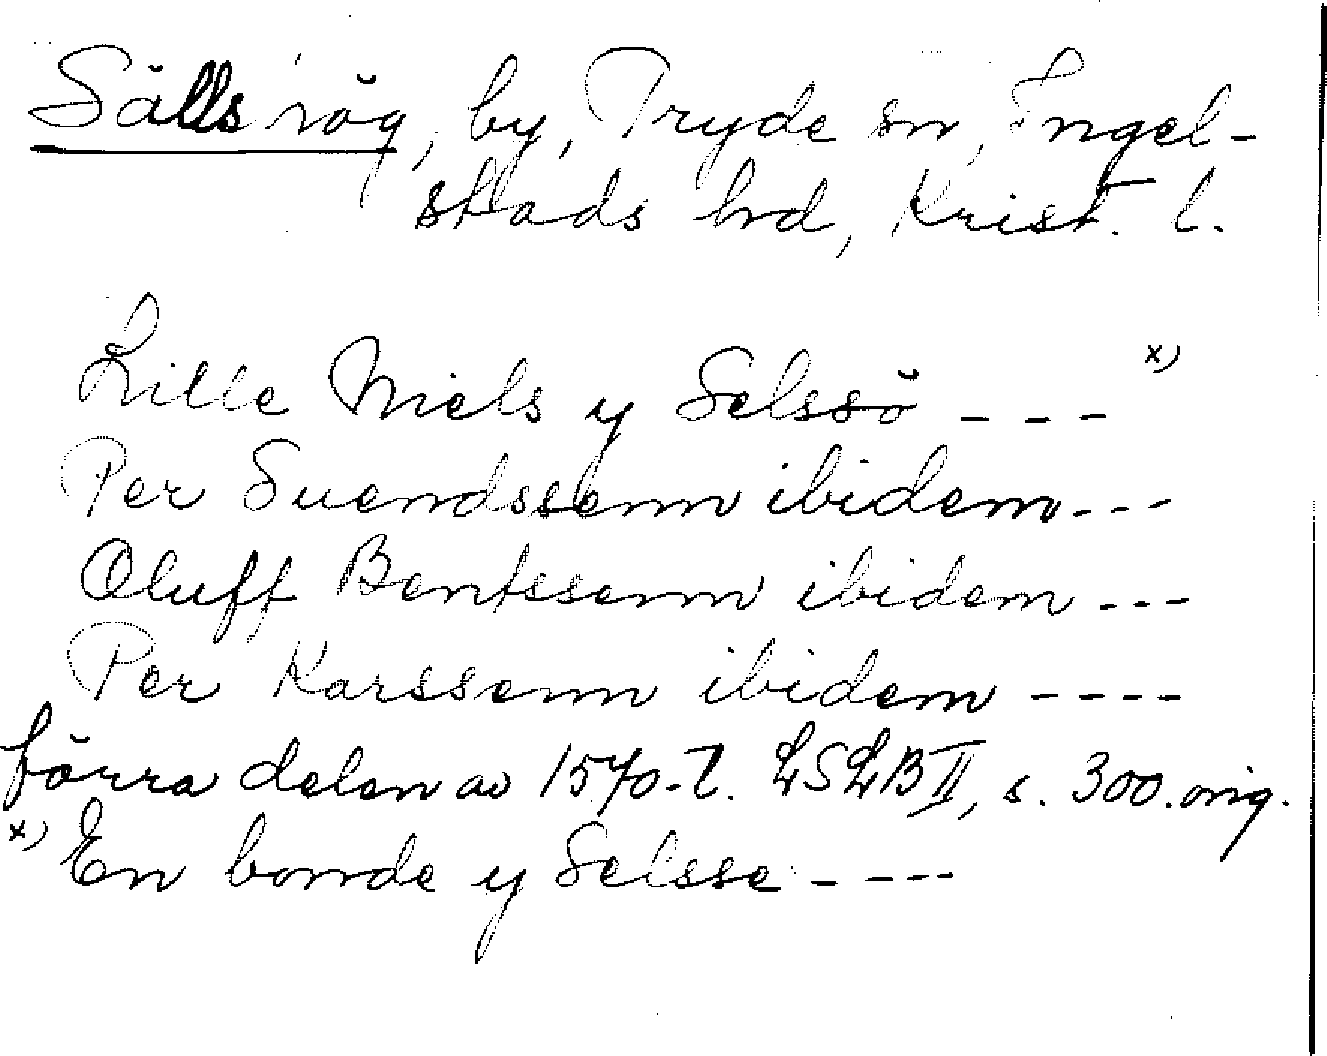 Sällsrög, by, Tryde sn, Ingel-
stads hrd, Krist. l.
Lille Niels y Selssö - - - x)
Per Suendssenn ibidem - - -
Oluff Bentssenn ibidem - - -
Per Karssenn ibidem - - - -
förra delen av 1570-t. LSLB II, s. 300. orig.
x) En bonde y Selsse - - - -